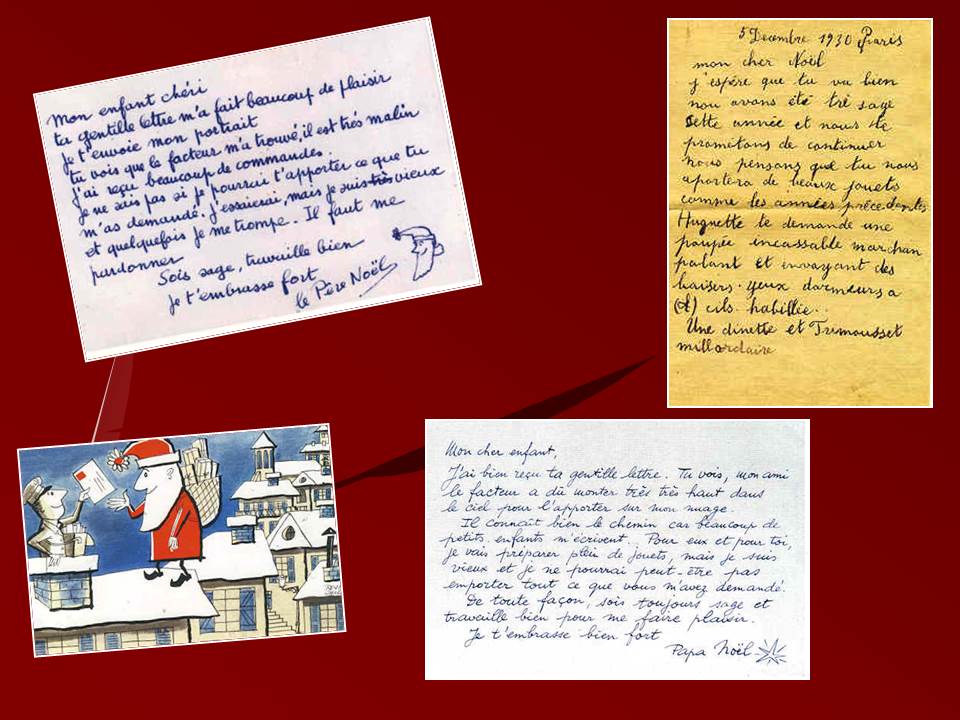 Mon enfant chéri
ta gentille lettre m'a fait beaucoup de plaisir
Je t'envoie mon portrait
tu vois que le facteur m'a trouvé, il est très malin
J'ai reçu beaucoup de commandes.
Je ne sais pas si je pourrai t'apporter ce que tu
m'as demandé. J'essaierai, mais je suis très vieux
et quelquefois je me trompe. Il faut me
pardonner
Sois sage, travaille bien
Je t'embrasse fort
le Père Noël
5 Decembre 1930 Paris
mon cher Noël
j'espère que tu va bien
nou avons été trè sage
cette année et nous te
prometons de continuer
nous pensons que tu nous
aportera de beaux jouets
comme les années précedentes
Huguette te demande une
poupée incassable marchan
palant et envoyant des
baisers. yeux dormeurs a
(A) cils habillie..
Une dinette et Tremousset
millardaire
Mon cher enfant,
J'ai bien reçu ta gentille lettre. Tu vois, mon ami
le facteur a dû monter très très haut dans
le ciel pour l'apporter sur mon nuage.
Il connaît bien le chemin car beaucoup de
petits enfants m'écrivent... Pour eux et pour toi,
je vais préparer plein de jouets, mais je suis
vieux et je ne pourrai peut-être pas
emporter tout ce que vous m'avez demandé.
De toute façon, sois toujours sage et
travaille bien pour me faire plaisir.
Je t'embrasse bien fort
Papa Noël